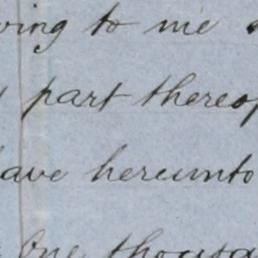 ving to me
part thereof
have hereunto
One thousa